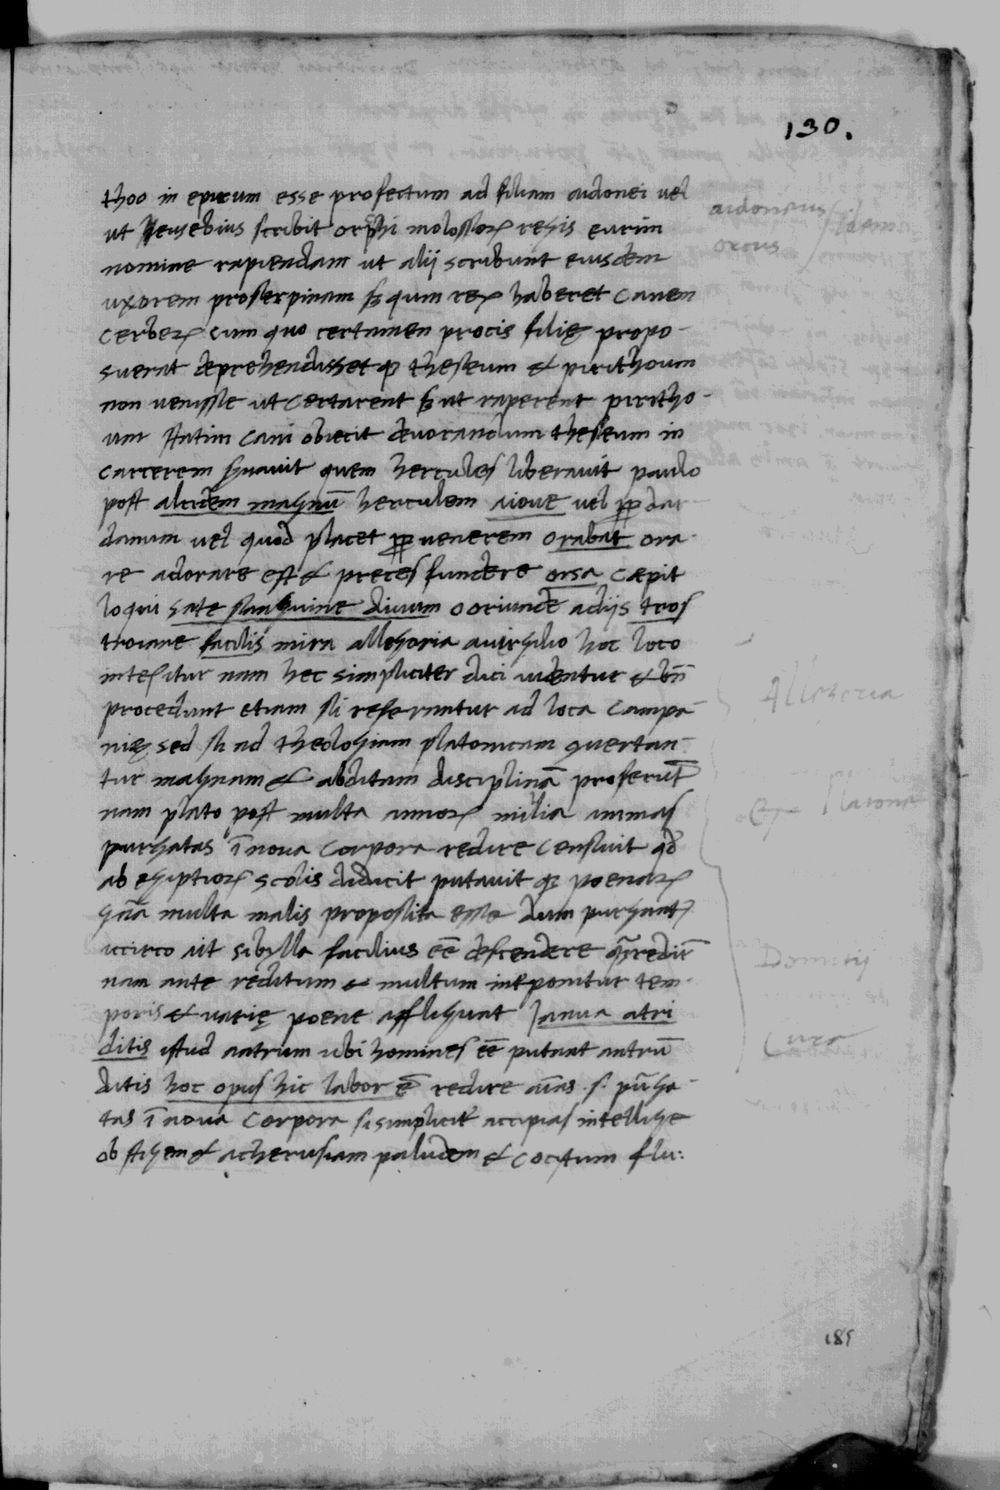 130.
thoo in epirum esse profectum ad filiam aidonei vel
ut eusebius scribit orphi molossoꝝ regis eurim
nomine rapiendam ut alij scribunt eiusdem
uxorem proserpinam sꝫ qum rex haberet canem
cerbeꝝ cum quo certamen procis filię propo-
suerat deprehendisset qꝫ theseum & pirithoum
non venisse ut certarent sꝫ ut raperent piritho-
um statim cani obiecit devorandum theseum in
carcerem servavit quem hercules liberavit paulo
post alcidem magnū herculem a iove vel ꝓpꝑ dar-
danum vel quod placet ꝓpꝑ venerem orabat ora-
re adorare est & preces fundere orsa cæpit
loqui sate sanguine divum o oriunde a dijs tros
troiane facilis mira allegoria a virgilio hoc loco
intexitur nam hec simpliciter dici videntur & bn̄
procedunt etiam si referantur ad loca campa-
nię sed si ad theologiam platonicam ꝯvertan-
tur magnam & abditam disciplinā proferūt
nam plato post multa annoꝝ milia animas
purgatas ī nova corpora redire censuit qd̄
ab egiptioꝝ scolis didicit putavit qꝫ poenaꝝ
gn̄a multa malis proposita esse dum purgant᷑
iccirco ait sibylla facilius eē descendere qᷓ̄ redir̄
nam ante reditum & multum interponitur tem-
poris & varię poene affligunt Janua atri
ditis istud antrum ubi homines eē putant antrū
ditis hoc opus hic labor ē redire aīas .s. purga-
tas ī nova corpora si simpliciter accipias intellige
ob stigem & acherusiam paludem & cocitum flu:
aidoneus
orcus
Idem
Allegoria
Platone
Domitij
Cura
185